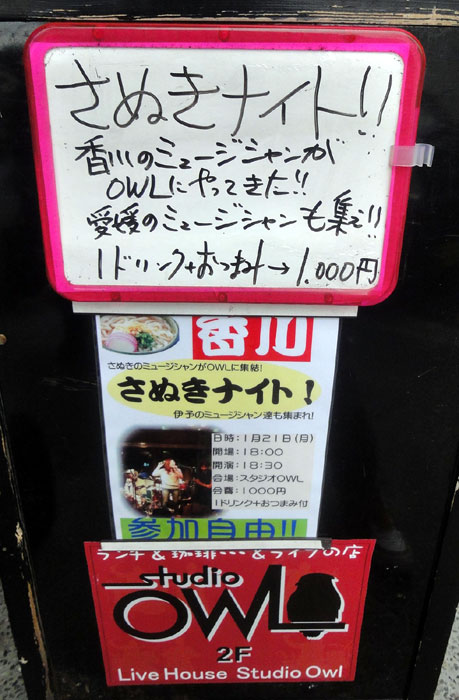 さぬきナイト!!
香川のミュージシャンが
OWLにやってきた!!
愛媛のミュージシャンも集え!!
1ドリンク+おつまみ→1.000円
香川
さぬきのミュージシャンがOWLに集結!
さぬきナイト!
伊予のミュージシャン達も集まれ!
日時:1月21日(月)
開場:18:00
開演:18:30
会場:スタジオOWL
会費:1000円
1ドリンク+おつまみ付
参加自由!!
ランチ&珈琲…&ライブの店
studio
OWL
2F
Live House Studio Owl